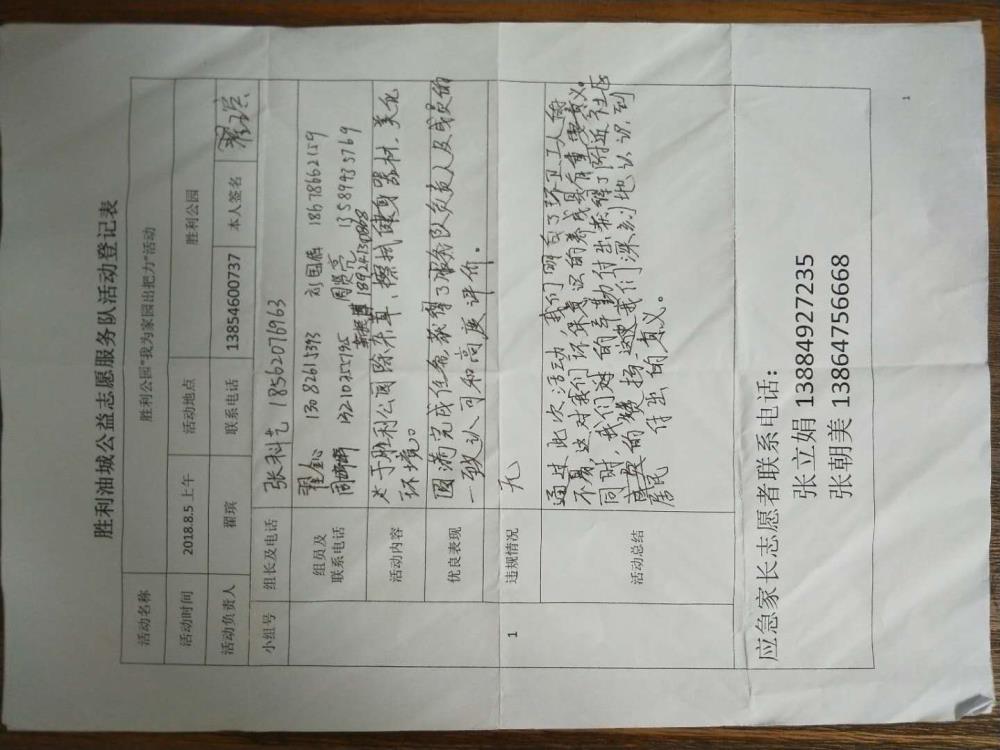 胜利油城公益志愿服务队活动登记表
活动名称 胜利公园“我为家园出把力”活动
活动时间 2018.8.5 上午 活动地点 胜利公园
活动负责人 翟瑸 联系电话 13854600737 本人签名
小组号 组长及电话 张科艺 18562076963
1
组员及
联系电话
翟金心 13082615393 彭国栋 18678662159
周晴晴 13210255795 周贤亮 13589935769
18924130868
活动内容 处于胜利公园除杂草、擦拭健身器材、美化
环境。
优良表现 圆满完成任务获得了服务队负责人及成员的
一致认可和高度评价。
违规情况 无
活动总结 通过此次活动,我们明白了环卫工人的
不易,这对我们环保意识的养成具有重要意义。
同时,我们对的辛勤付出获得了附近社区
居民的赞扬,这使我们深刻地认识到
付出的意义。
应急家长志愿者联系电话:
张立娟 13884927235
张朝美 13864756668
1